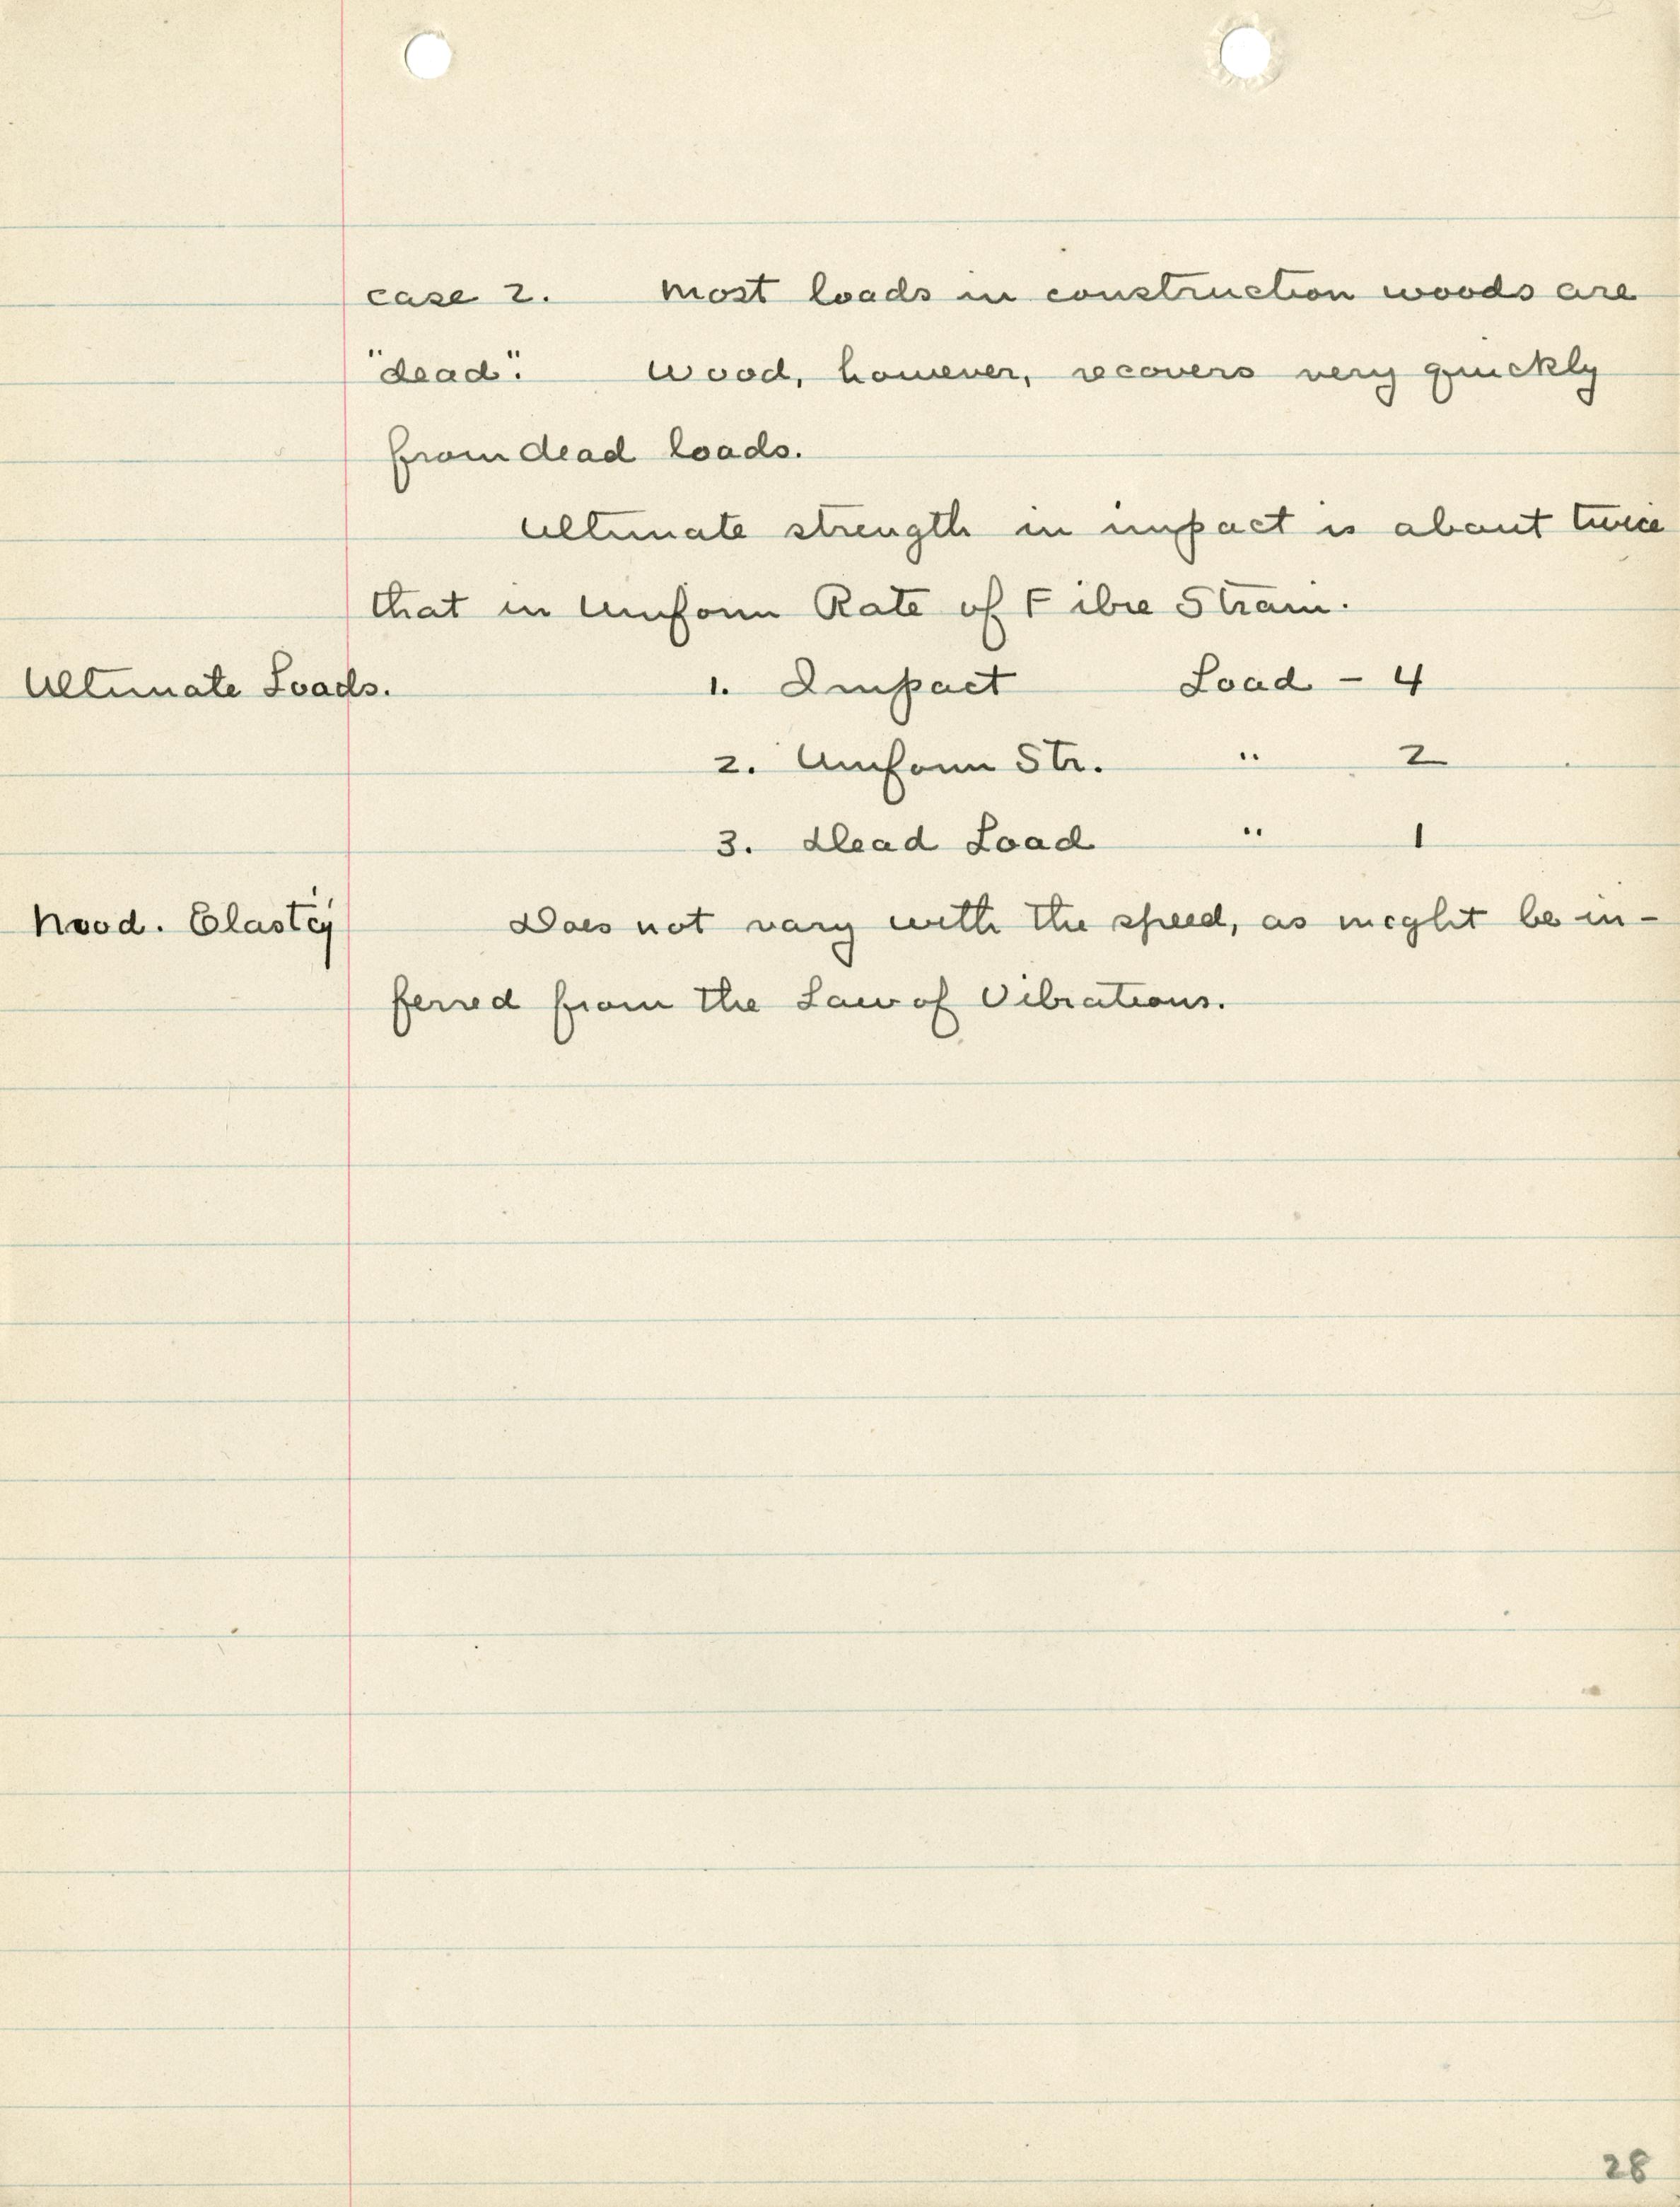 case 2. Most loads in construction woods are
"dead". Wood, however, recovers very quickly
from dead loads.
Ultimate strength in impact is about twice
that in Uniform Rate of Fibre Strain.
Ultimate Loads. 1. Impact Load - 4
2. Uniform Str. " 2
3. Dead Load " 1
Mod. Elast'y Does not vary with the speed, as might be in-
ferred from the Law of Vibrations.
28